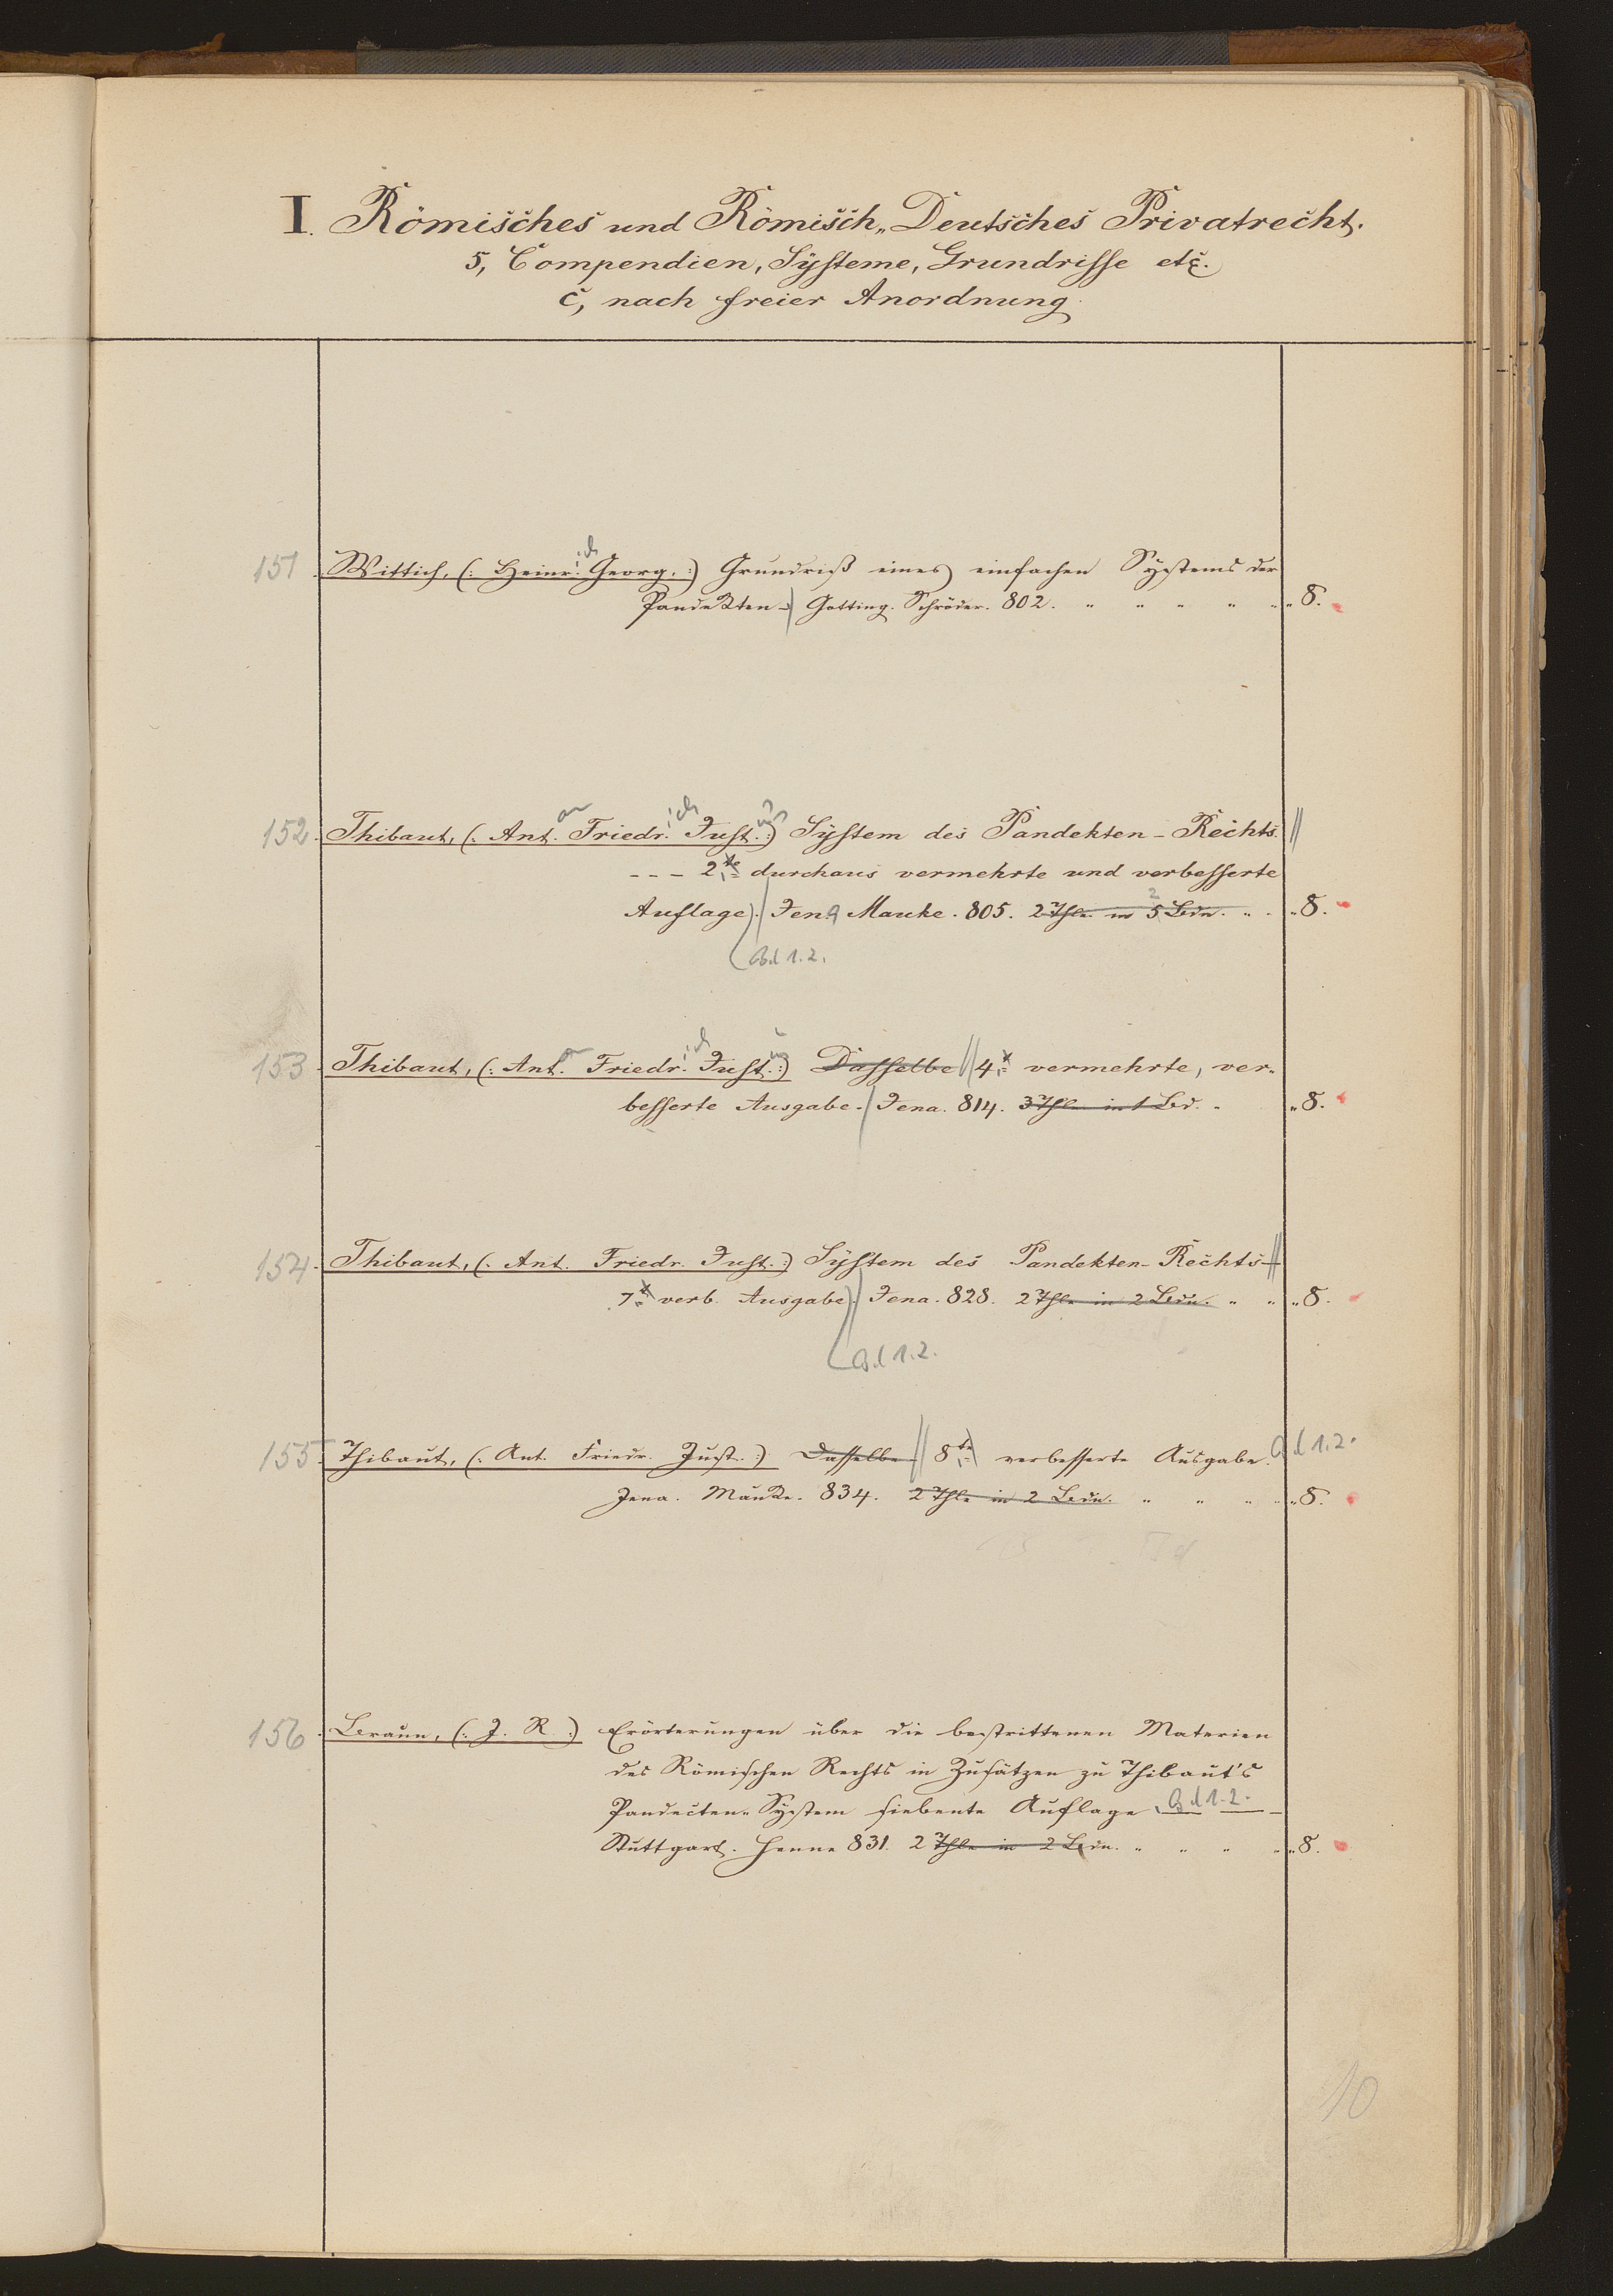 I. Römisches und Römisch„Deutsches Privatrecht.
5, Compendien, Systeme, Grundrisse etc.
c, nach freier Anordnung.
151 Wittich, (: Heinr. Georg. :) Grundriß eines einfachen Systems der
Pandekten. Gotting. Schröder. 802. „ „ „ „ „ 8.
152. Thibaut, (: Ant. Friedr. Just. :) System des Pandekten-Rechts.
--- 2te durchaus vermehrte und verbesserte
Auflage. Jena Mauke. 805. 2 Thle in 5 Bdn. „ „ 8.
Bd 1.2.
153. Thibaut, (: Ant. Friedr. Just. :) Dasselbe 4te vermehrte, ver-
besserte Ausgabe. Jena. 814. 3 Thle in 1 Bd. „ „ 8.
154. Thibaut, (: Ant. Friedr. Just. :) System des Pandekten-Rechts-
7te verb. Ausgabe. Jena. 828. 2 Thle in 2 Bdn. „ „ „ 8.
Bd 1.2.
155. Thibaut, (: Ant. Friedr. Just. :) Dasselbe 8te verbesserte Ausgabe. Bd 1.2.
Jena. Mauke. 834. 2 Thle in 2 Bdn. „ „ „ „ 8.
156. Braun, (: J. R. :) Erörterungen über die bestrittenen Materien
des Römischen Rechts in Zusätzen zu Thibaut's
Pandecten-System siebente Auflage, Bd 1.2.
Stuttgart. Henne 831. 2 Thle in 2 Bdn. „ „ „ „ 8.
10